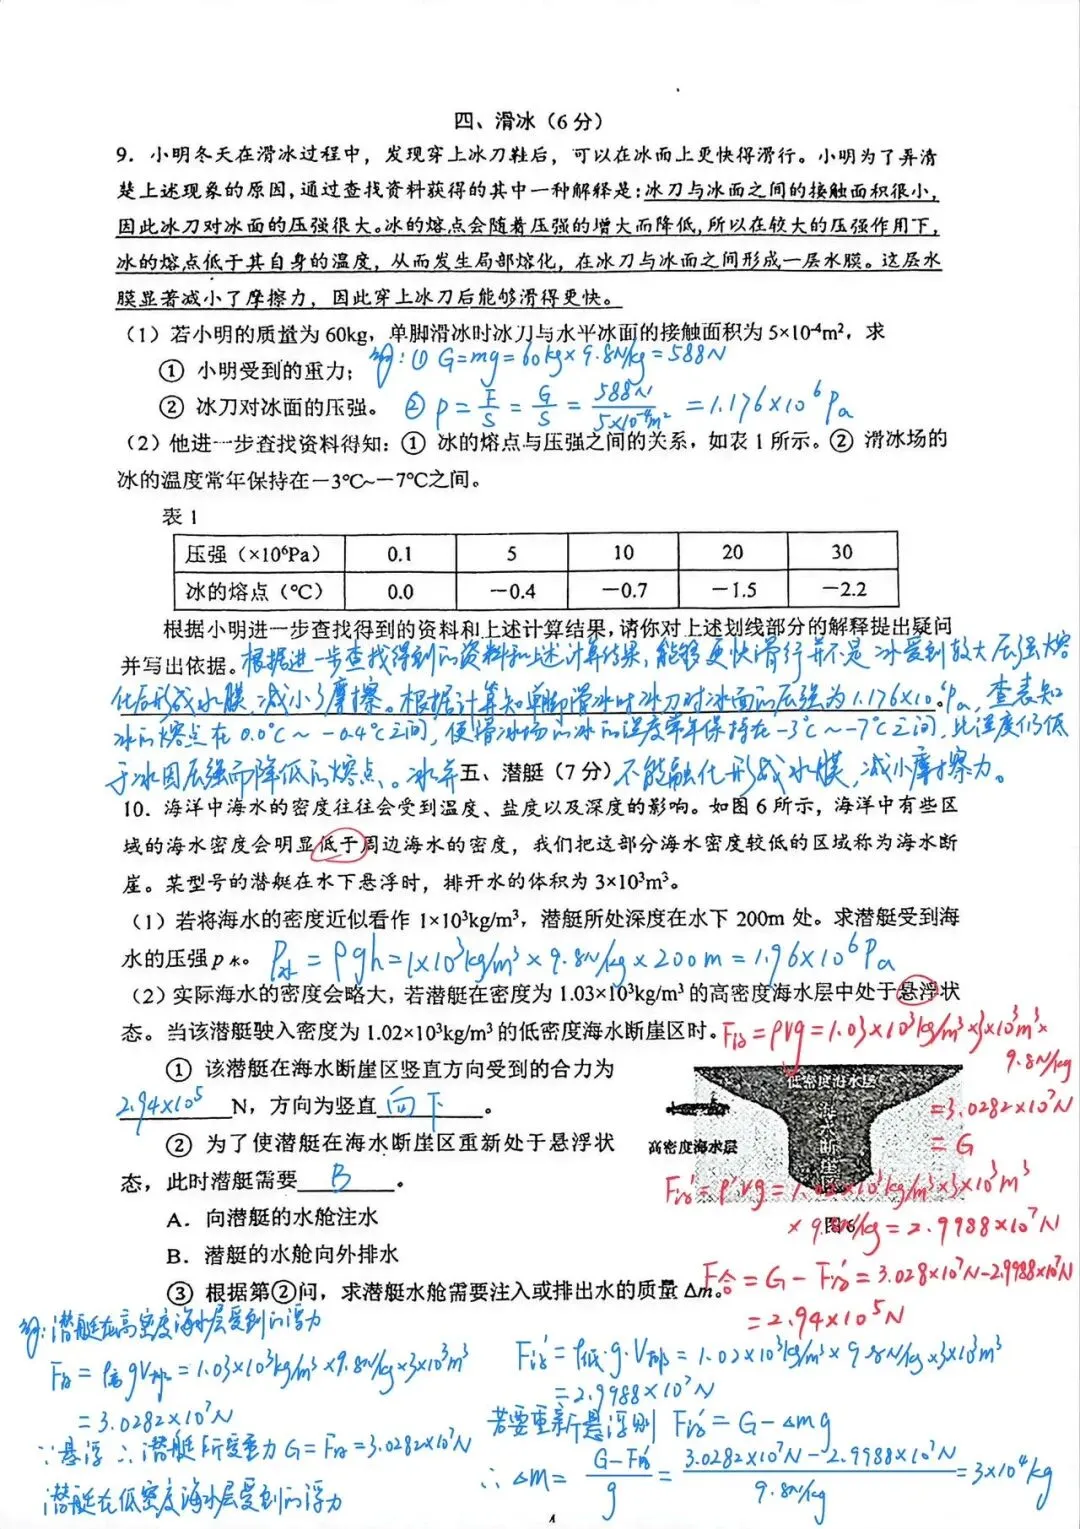 四、滑冰（6分）
9．小明冬天在滑冰过程中，发现穿上冰刀鞋后，可以在冰面上更快得滑行。小明为了弄清
楚上述现象的原因，通过查找资料获得的其中一种解释是：冰刀与冰面之间的接触面积很小，
因此冰刀对冰面的压强很大。冰的熔点会随着压强的增大而降低，所以在较大的压强作用下，
冰的熔点低于其自身的温度，从而发生局部熔化，在冰刀与冰面之间形成一层水膜。这层水
膜显著减小了摩擦力，因此穿上冰刀后能够滑得更快。
（1）若小明的质量为60kg，单脚滑冰时冰刀与水平冰面的接触面积为5×10⁻⁴m²，求
① 小明受到的重力；解：① G=mg=60kg×9.8N/kg=588N
② 冰刀对冰面的压强。② P=F/S=G/S=588N/5×10⁻⁴m²=1.176×10⁶Pa
（2）他进一步查找资料得知：① 冰的熔点与压强之间的关系，如表1所示。② 滑冰场的
冰的温度常年保持在－3℃~－7℃之间。
表1
压强（×10⁶Pa） 0.1 5 10 20 30
冰的熔点（℃） 0.0 －0.4 －0.7 －1.5 －2.2
根据小明进一步查找得到的资料和上述计算结果，请你对上述划线部分的解释提出疑问
并写出依据。根据进一步查找得到的资料和上述计算结果，能够更快滑行并不是冰受到较大压强熔
化后形成水膜，减小了摩擦。根据计算知单脚滑冰时冰刀对冰面的压强为1.176×10⁶Pa，查表知
冰的熔点在0.0℃～-0.4℃之间，使滑冰场的冰的温度常年保持在-3℃～-7℃之间，此温度仍低
于冰因压强而降低的熔点、。冰并 五、潜艇（7分） 不能融化形成水膜，减小摩擦力。
10．海洋中海水的密度往往会受到温度、盐度以及深度的影响。如图6所示，海洋中有些区
域的海水密度会明显低于周边海水的密度，我们把这部分海水密度较低的区域称为海水断
崖。某型号的潜艇在水下悬浮时，排开水的体积为3×10³m³。
（1）若将海水的密度近似看作1×10³kg/m³，潜艇所处深度在水下200m处。求潜艇受到海
水的压强p水。P水=ρgh=1×10³kg/m³×9.8N/kg×200m=1.96×10⁶Pa
（2）实际海水的密度会略大，若潜艇在密度为1.03×10³kg/m³的高密度海水层中处于悬浮状
态。当该潜艇驶入密度为1.02×10³kg/m³的低密度海水断崖区时。F浮=ρVg=1.03×10³kg/m³×3×10³m³×
9.8N/kg
=3.0282×10⁷N
=G
① 该潜艇在海水断崖区竖直方向受到的合力为
2.94×10⁵N，方向为竖直向下。
② 为了使潜艇在海水断崖区重新处于悬浮状
态，此时潜艇需要B。
A．向潜艇的水舱注水
B．潜艇的水舱向外排水
③ 根据第②问，求潜艇水舱需要注入或排出水的质量Δm。
低密度海水层
海水断崖
高密度海水层
图6
F浮′=ρ′Vg=1.02×10³kg/m³×3×10³m³
×9.8N/kg=2.9988×10⁷N
F合=G-F浮′=3.028×10⁷N-2.9988×10⁷N
=2.94×10⁵N
解：潜艇在高密度海水层受到的浮力
F浮=ρ高gV排=1.03×10³kg/m³×9.8N/kg×3×10³m³
=3.0282×10⁷N
∵悬浮 ∴潜艇所受重力G=F浮=3.0282×10⁷N
潜艇在低密度海水层受到的浮力
F浮′=ρ低·g·V排=1.02×10³kg/m³×9.8N/kg×3×10³m³
=2.9988×10⁷N
若要重新悬浮则 F浮′=G-Δmg
∴Δm=G-F浮′/g=3.0282×10⁷N-2.9988×10⁷N/9.8N/kg=3×10⁴kg
4